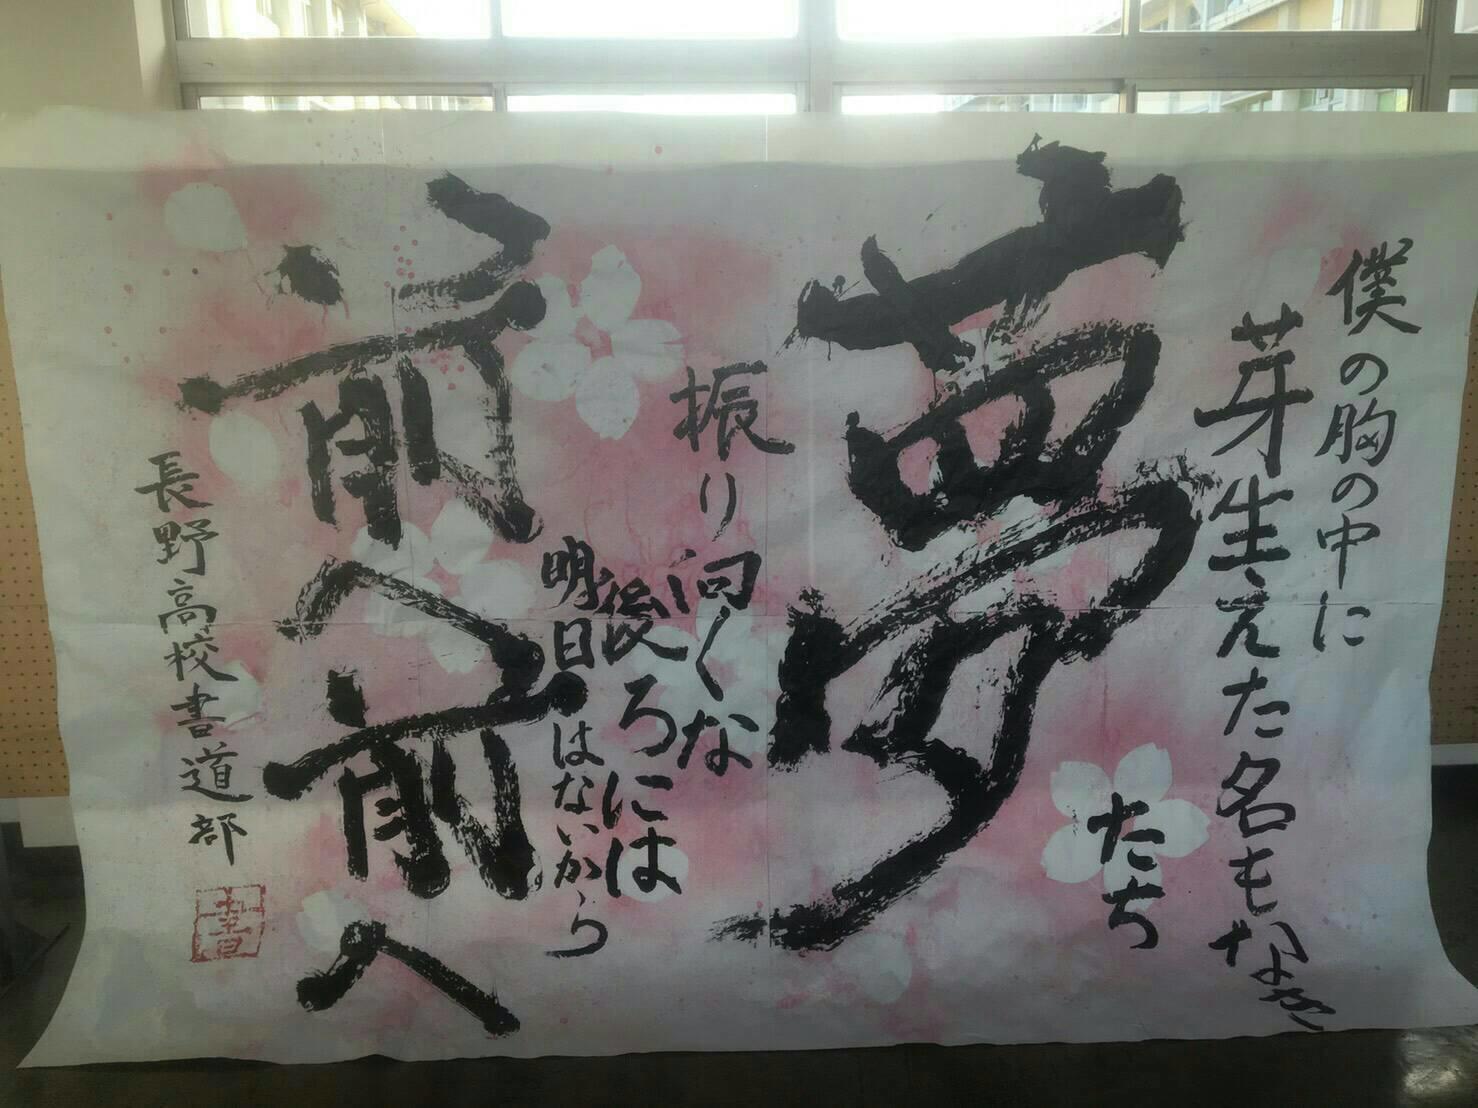 僕の胸の中に
芽生えた名もなき
夢
たち
振り向くな
後ろには
明日はないから
前へ前へ
長野高校書道部
書